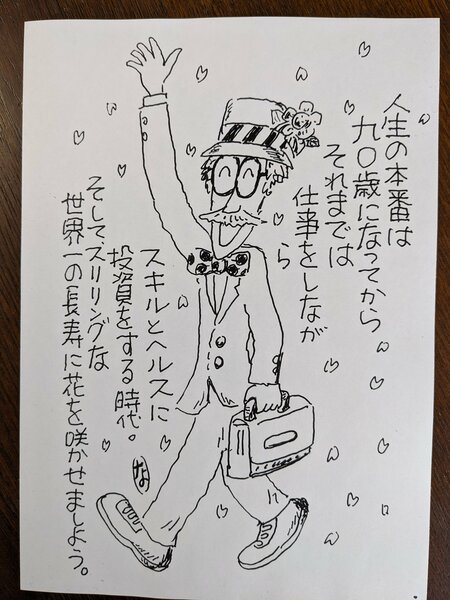 人生の本番は
九〇歳になってから
それまでは
仕事をしなが
ら
スキルとヘルスに
投資をする時代。
な
そして、スリリングな
世界一の長寿に花を咲かせましょう。